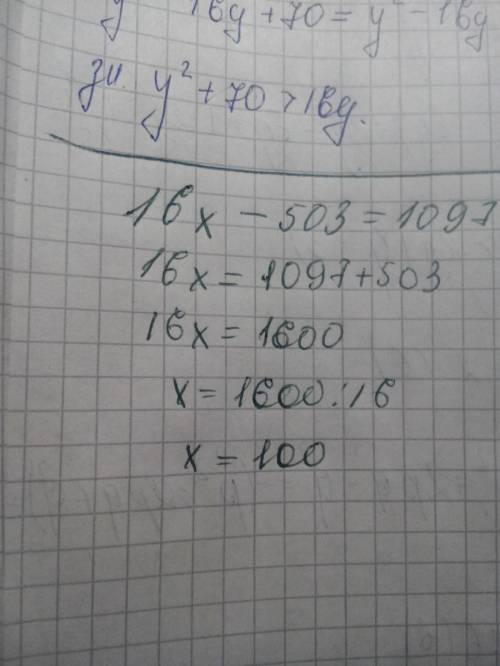 16y + 70 = y² - 16y
зн. y² + 70 > 16y.
16x - 503 = 1097
16x = 1097 + 503
16x = 1600
x = 1600 : 16
x = 100